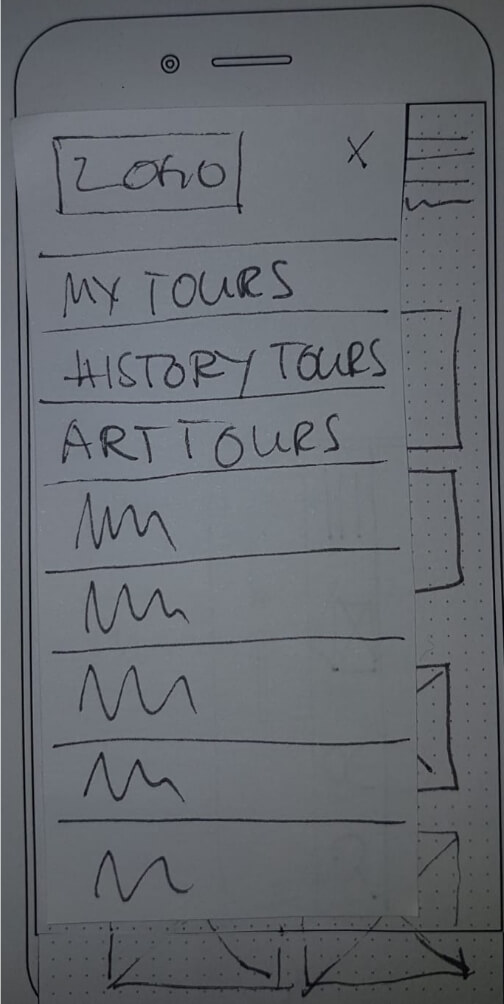 LOGO
X
MY TOURS
HISTORY TOURS
ART TOURS